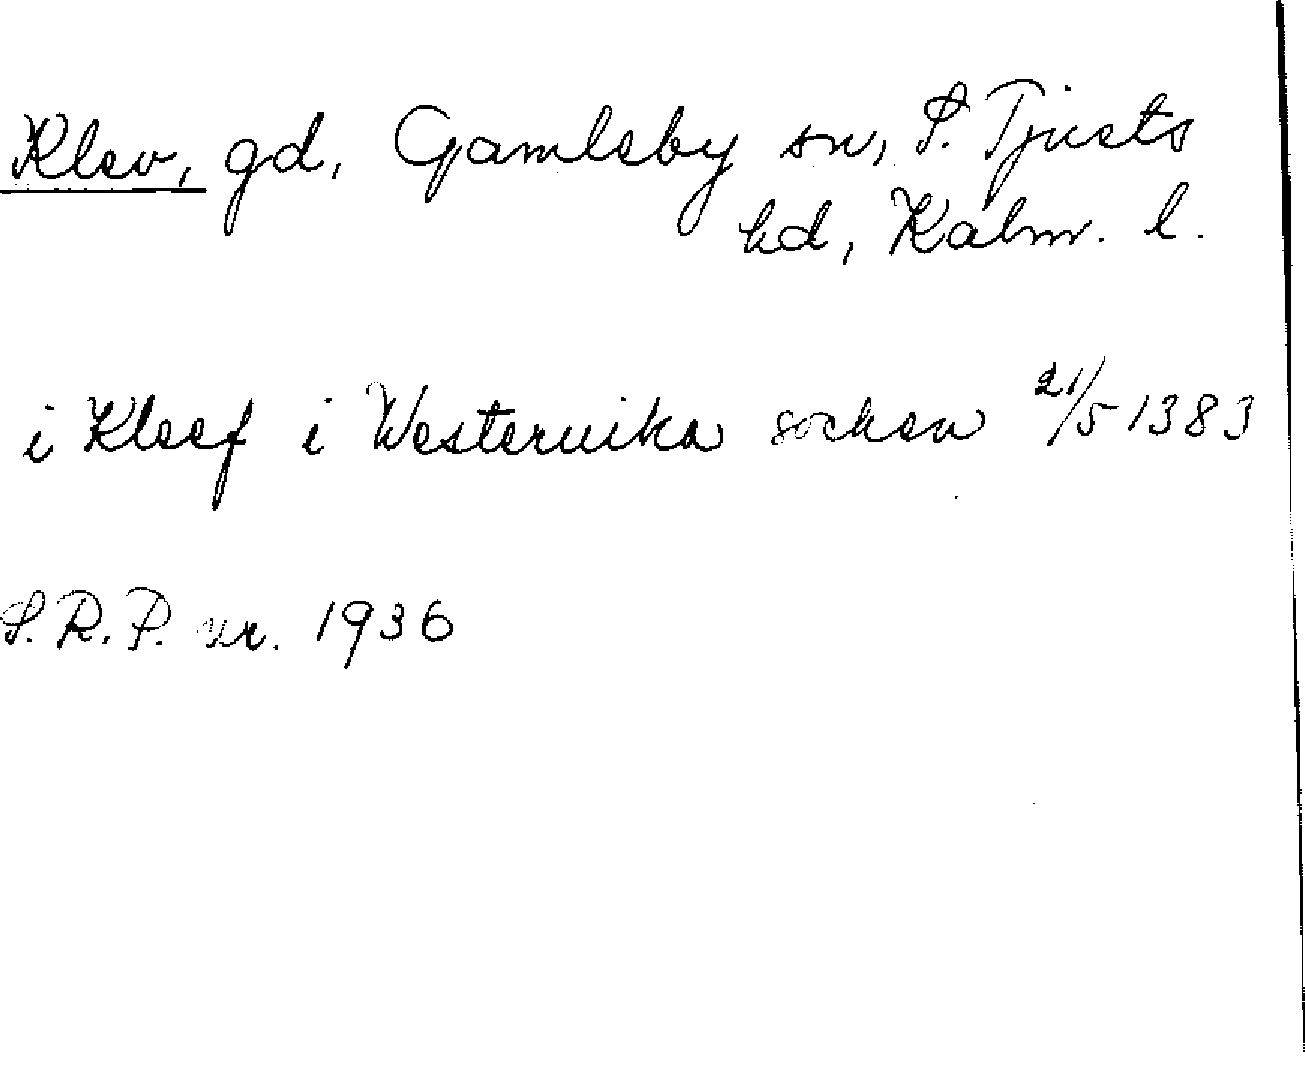 Klev, gd, Gamleby sn, S. Tjusts
hd, Kalm. l.
i Kleef i Westeruika sochen 21/5 1383
S.R.P. nr. 1936